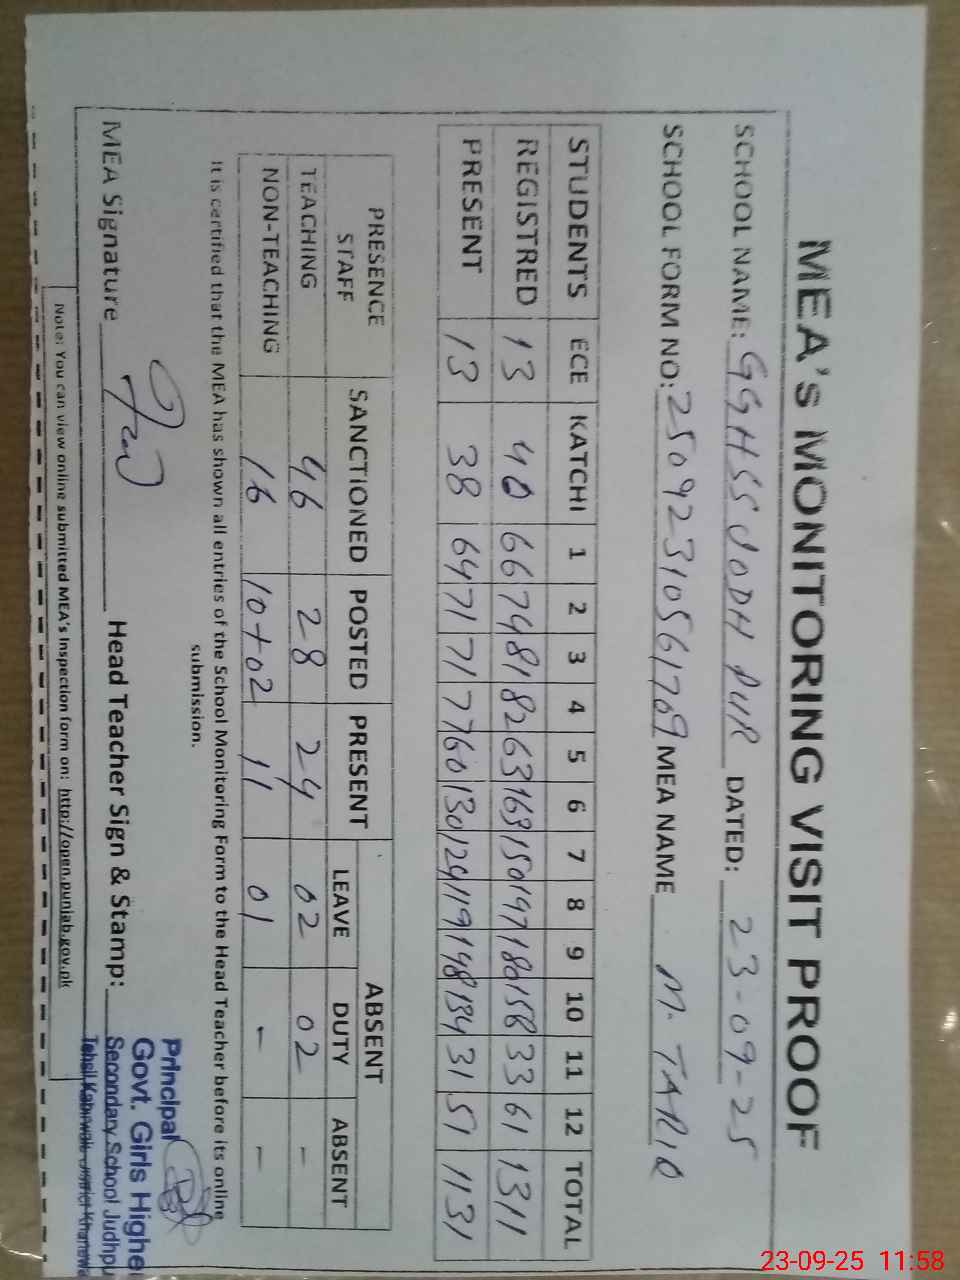 MEA's MONITORING VISIT PROOF
SCHOOL NAME: GGHSS JODH PUR DATED: 23-09-25
SCHOOL FORM NO: 25092310561709 MEA NAME M. TARIQ
STUDENTS ECE KATCHI 1 2 3 4 5 6 7 8 9 10 11 12 TOTAL
REGISTRED 13 40 66 74 81 82 63 163 150 147 180 158 33 61 1311
PRESENT 13 38 64 71 71 77 60 130 124 119 148 134 31 51 1131
PRESENCE STAFF SANCTIONED POSTED PRESENT ABSENT
LEAVE DUTY ABSENT
TEACHING 46 28 24 02 02 -
NON-TEACHING 16 10+02 11 01 - -
It is certified that the MEA has shown all entries of the School Monitoring Form to the Head Teacher before its online
submission.
MEA Signature Head Teacher Sign & Stamp:
Principal
Govt. Girls Highe
Secondary School Judhpu
Tehsil Kabirwala District Khanewa
Note: You can view online submitted MEA's Inspection form on: http://open.punjab.gov.pk
23-09-25 11:58